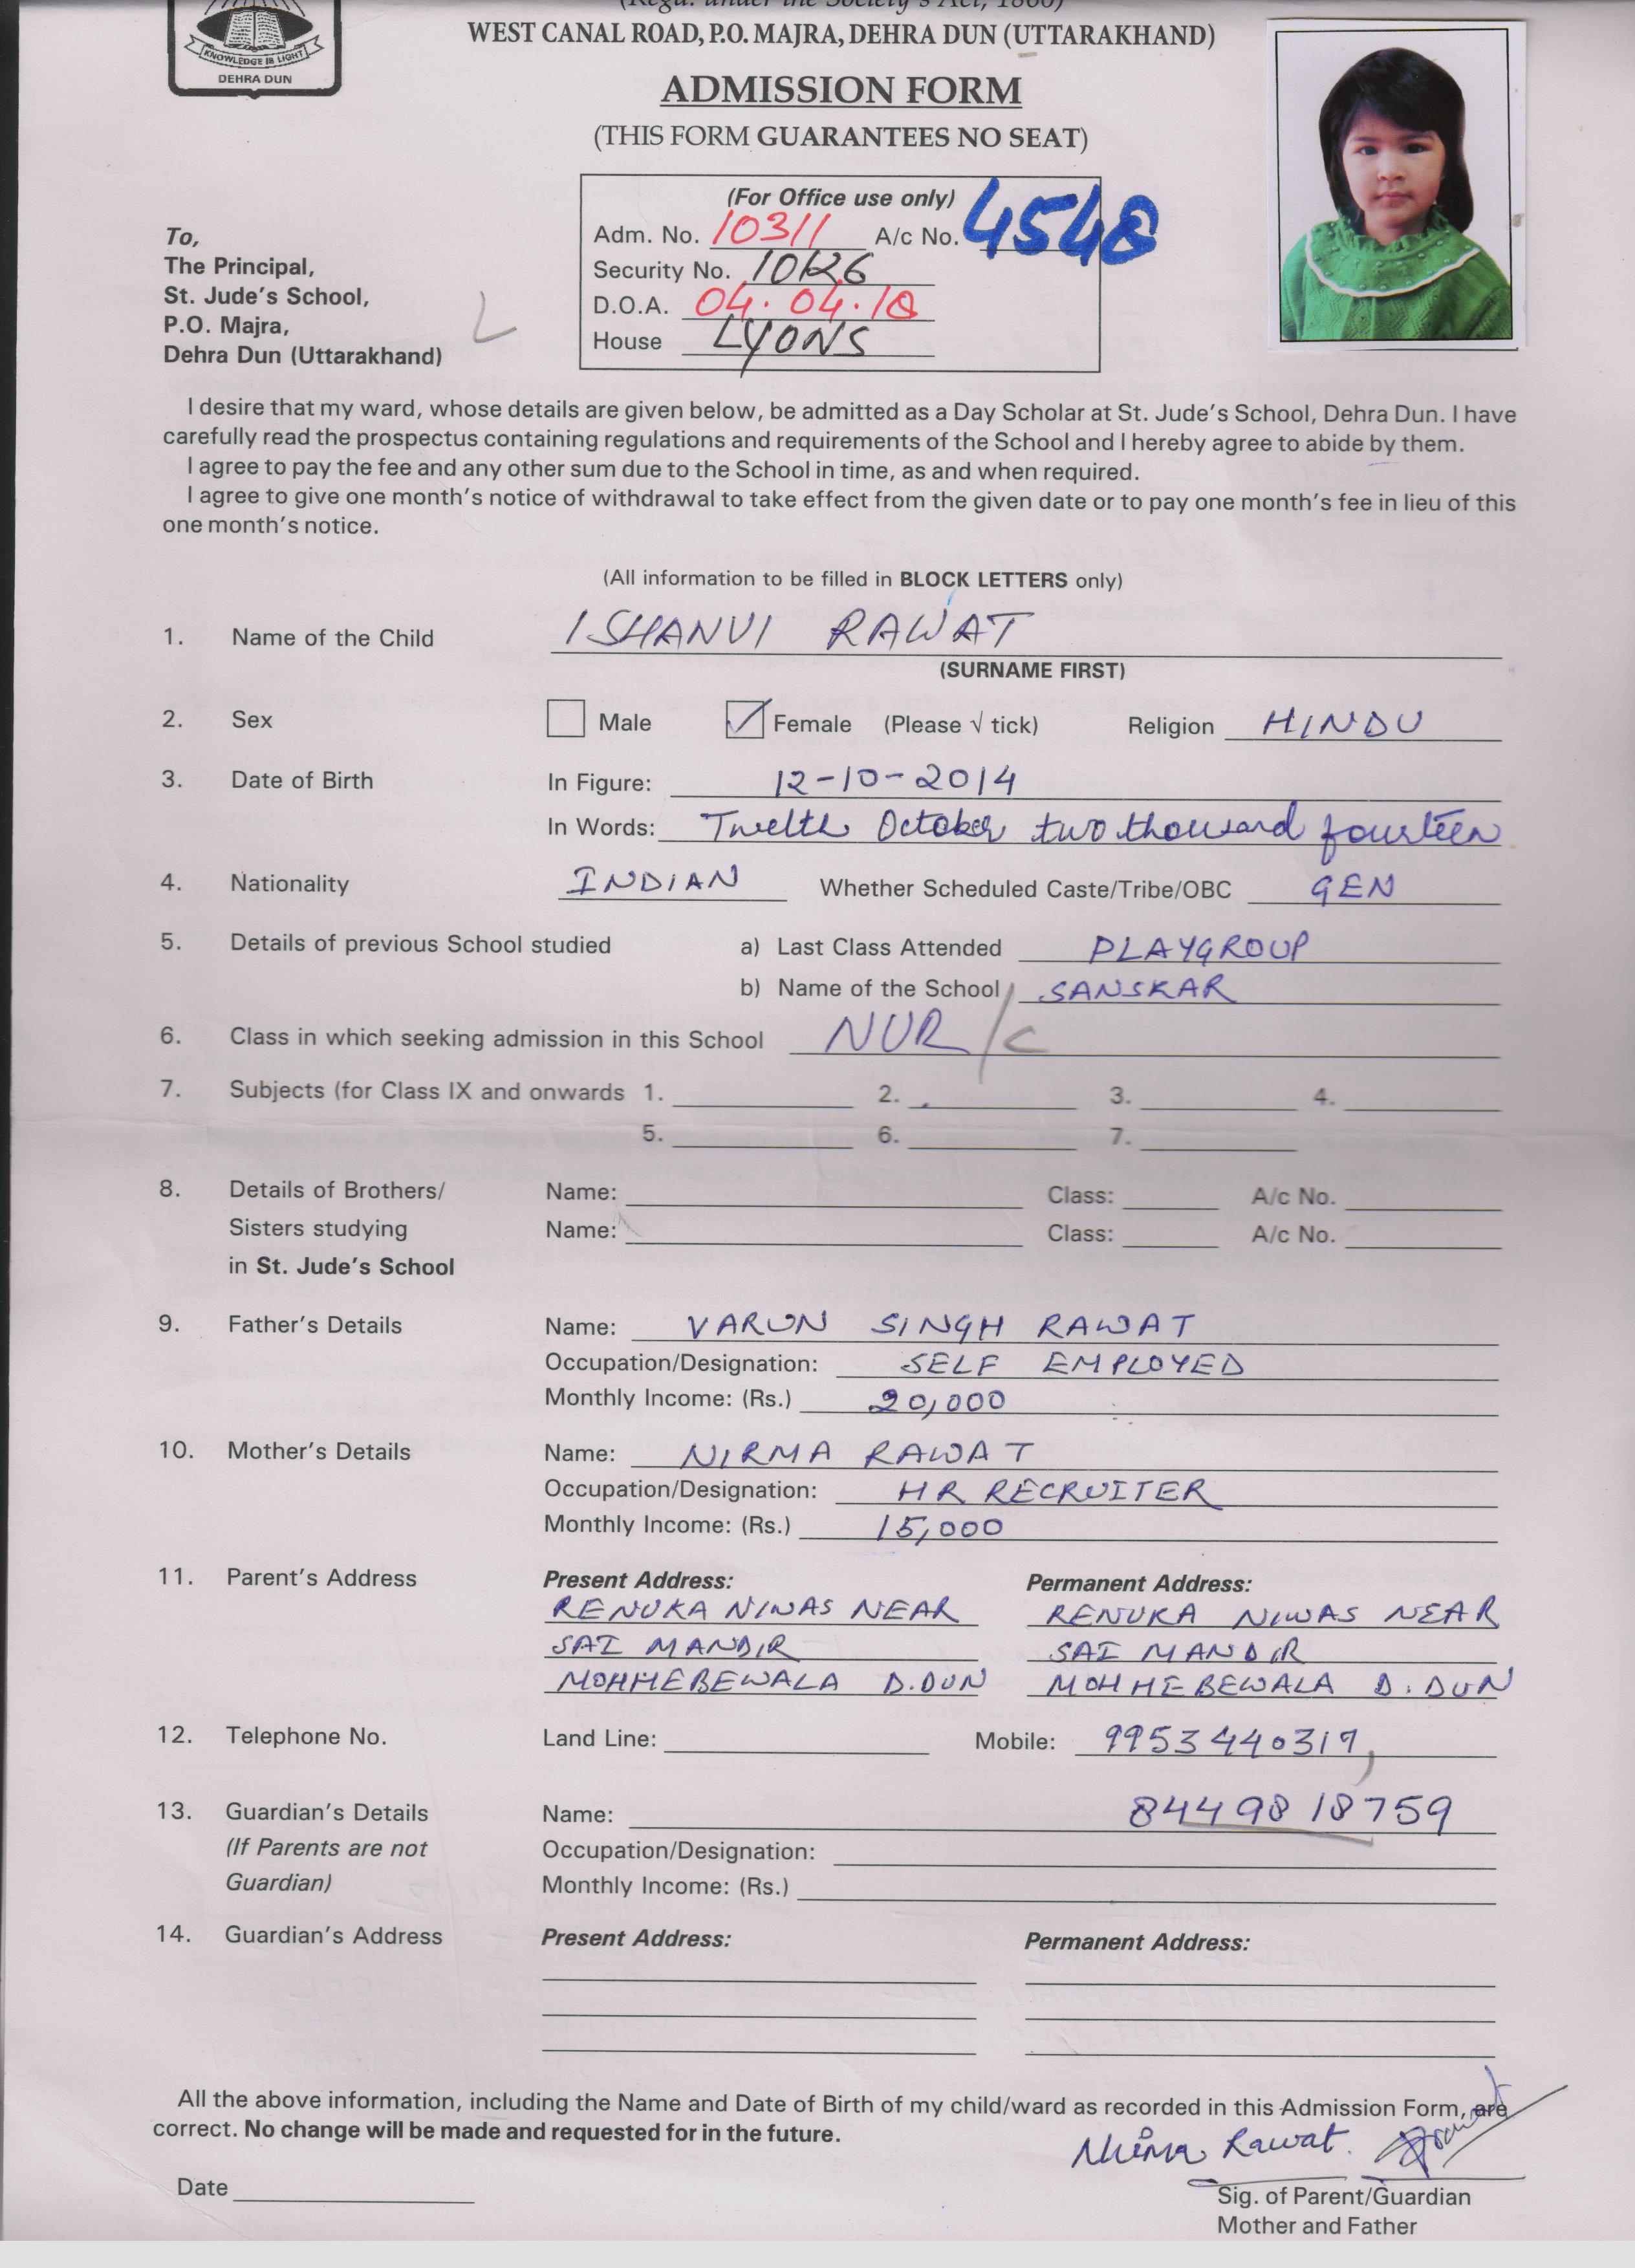 (Regd. under the Society's Act, 1860)
WEST CANAL ROAD, P.O. MAJRA, DEHRA DUN (UTTARAKHAND)
KNOWLEDGE IS LIGHT
DEHRA DUN
ADMISSION FORM
(THIS FORM GUARANTEES NO SEAT)
(For Office use only)
Adm. No. 10311 A/c No. 4548
Security No.
D.O.A. 04.04.18
House LYONS
To,
The Principal,
St. Jude's School,
P.O. Majra,
Dehra Dun (Uttarakhand)
I desire that my ward, whose details are given below, be admitted as a Day Scholar at St. Jude's School, Dehra Dun. I have
carefully read the prospectus containing regulations and requirements of the School and I hereby agree to abide by them.
I agree to pay the fee and any other sum due to the School in time, as and when required.
I agree to give one month's notice of withdrawal to take effect from the given date or to pay one month's fee in lieu of this
one month's notice.
(All information to be filled in BLOCK LETTERS only)
1. Name of the Child ISHANVI RAWAT
(SURNAME FIRST)
2. Sex Male Female (Please √ tick) Religion HINDU
3. Date of Birth In Figure: 12-10-2014
In Words: Twelth October two thousand fourteen
4. Nationality INDIAN Whether Scheduled Caste/Tribe/OBC GEN
5. Details of previous School studied a) Last Class Attended PLAYGROUP
b) Name of the School SANSKAR
6. Class in which seeking admission in this School NUR/C
7. Subjects (for Class IX and onwards 1. 2. 3. 4.
5. 6. 7.
8. Details of Brothers/ Name: Class: A/c No.
Sisters studying Name: Class: A/c No.
in St. Jude's School
9. Father's Details Name: VARUN SINGH RAWAT
Occupation/Designation: SELF EMPLOYED
Monthly Income: (Rs.) 20,000
10. Mother's Details Name: NIRMA RAWAT
Occupation/Designation: HR RECRUITER
Monthly Income: (Rs.) 15,000
11. Parent's Address Present Address: Permanent Address:
RENUKA NIWAS NEAR RENUKA NIWAS NEAR
SAI MANDIR SAI MANDIR
MOHHEBEWALA D.DUN MOHHEBEWALA D.DUN
12. Telephone No. Land Line: Mobile: 9953440319,
13. Guardian's Details Name: 8449818759
(If Parents are not Occupation/Designation:
Guardian) Monthly Income: (Rs.)
14. Guardian's Address Present Address: Permanent Address:
All the above information, including the Name and Date of Birth of my child/ward as recorded in this Admission Form, are
correct. No change will be made and requested for in the future.
Nirma Rawat.
Date
Sig. of Parent/Guardian
Mother and Father